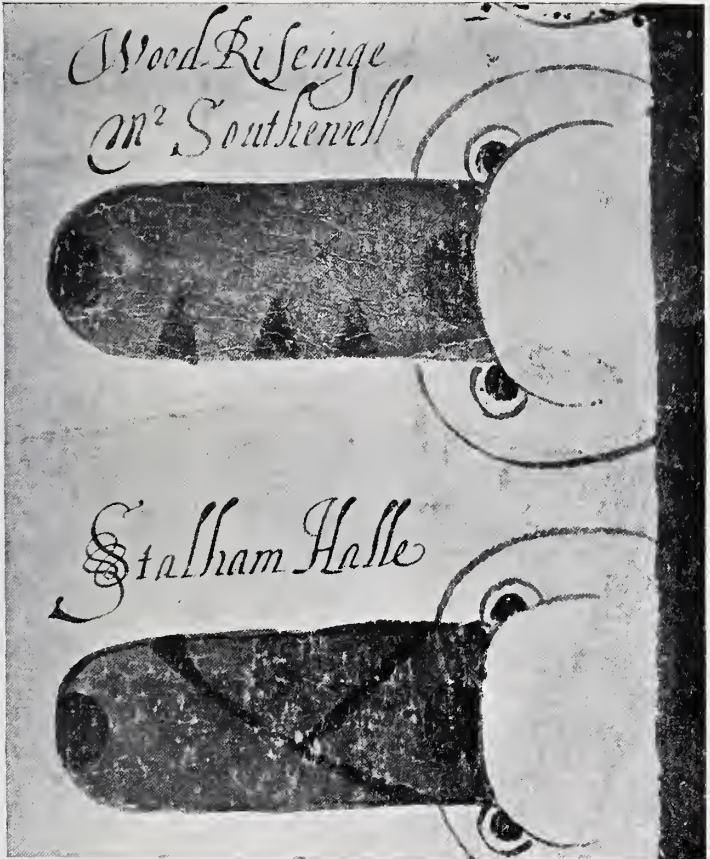 Wood Riseinge
Mr Southewell
Stalham Halle